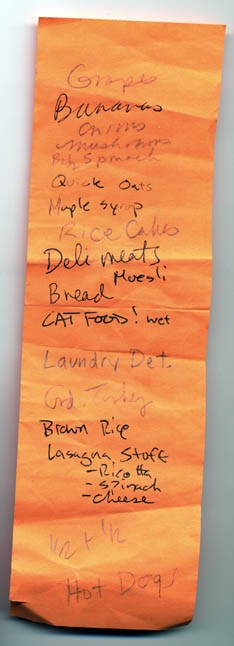 Grapes
Bananas
Onions
Mushrooms
Spinach
Quick Oats
Maple syrup
Rice Cakes
Deli meats
Muesli
Bread
CAT FOOD! wet
Laundry Det.
Grd. Turkey
Brown Rice
Lasagna Stuff
- Ricotta
- Spinach
- cheese
1/2 + 1/2
Hot Dogs